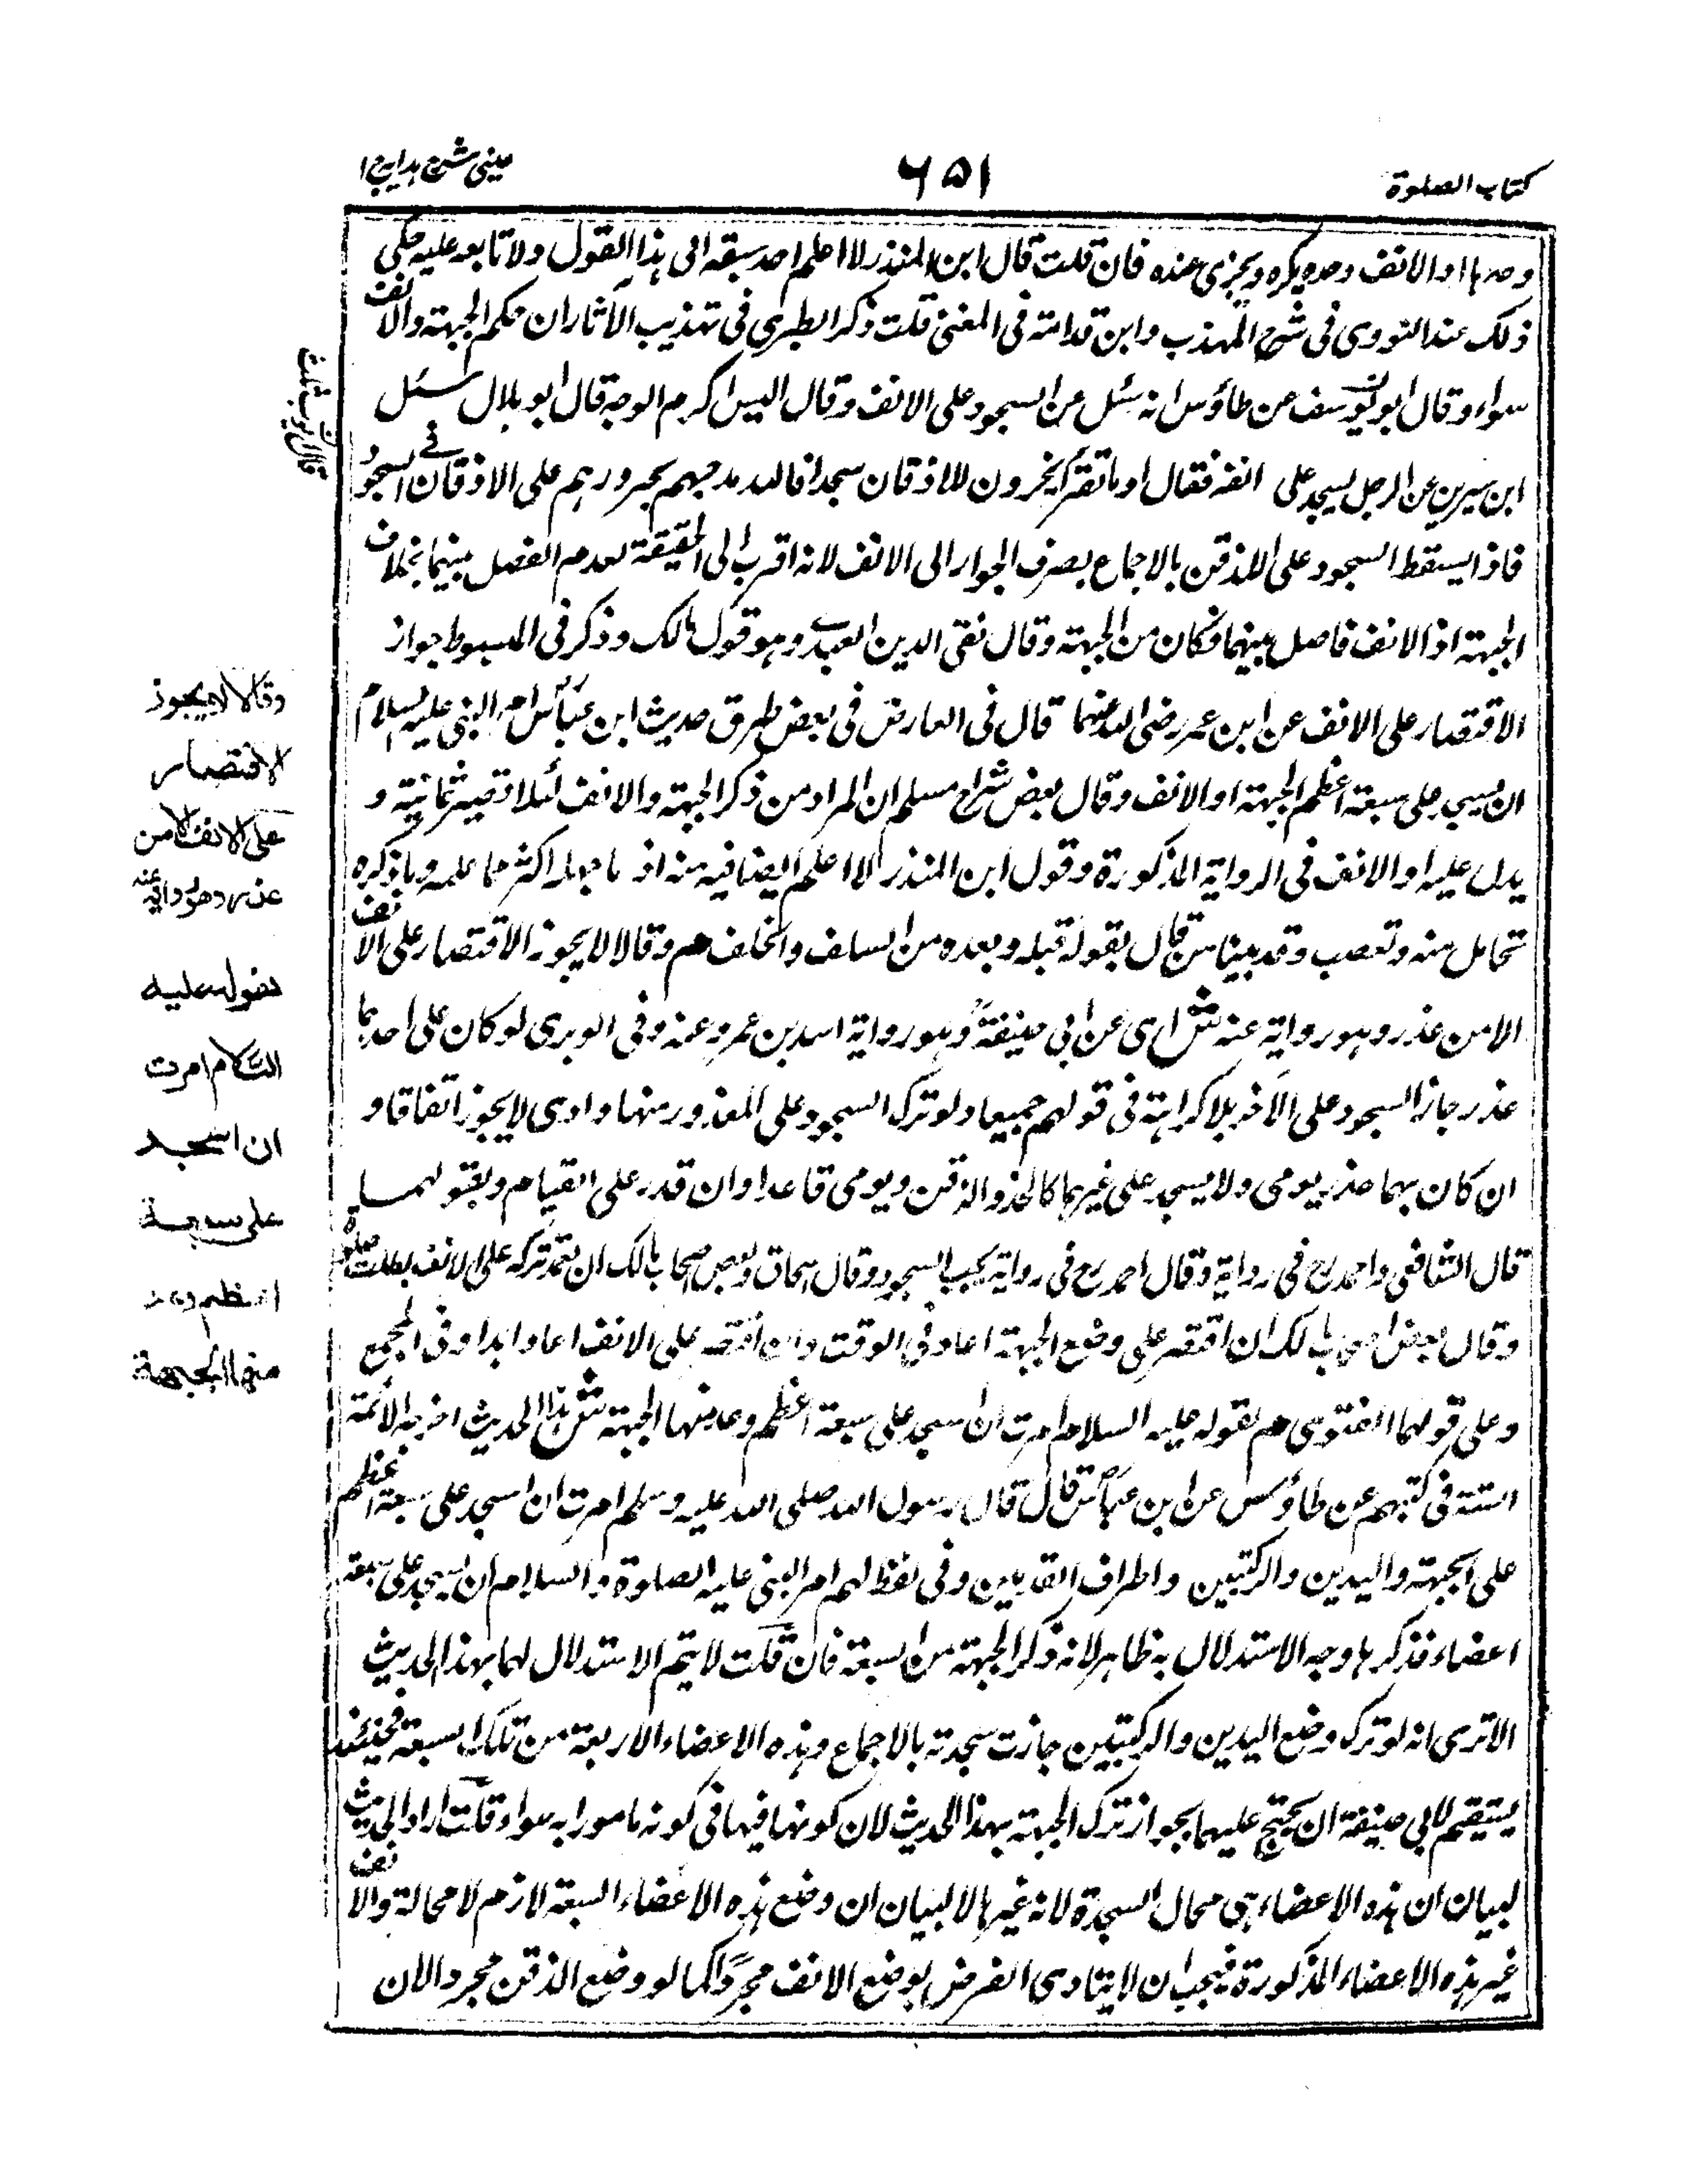 كتاب الصلوة
٦٥١
عيني شرح هداية ج ١
وحدها او الانف وحده يكره ويجزى عنده فان قلت قال ابن المنذر لا اعلم احد سبقه الى هذا القول ولا تابعه عليه حكى
ذلك عند النووى فى شرح المهذب وابن قدامة فى المغنى قلت ذكر الطبرى فى تهذيب الآثار ان حكم الجبهة والانف
سواء وقال ابو يوسف عن طاؤس انه سئل عن السجود على الانف وقال اليس اكرم الوجه قال ابو هلال سئل
ابن سيرين عن الرجل يسجد على انفه فقال او ما تقرأ يخرون للاذقان سجدا فالله مدحهم بخرورهم على الاذقان فى السجود
فاذا يسقط السجود على الذقن بالاجماع بصرف الجواز الى الانف لانه اقرب الى الحقيقة لعدم الفصل بينهما بخلاف
الجبهة اذ الانف فاصل بينهما فكان من الجبهة وقال تقى الدين العبد وهو قول مالك وذكر فى المبسوط جواز
الاقتصار على الانف عن ابن عمر رضى الله عنهما قال فى العارض فى بعض طرق حديث ابن عباس امر النبى عليه السلام
ان يسجد على سبعة اعظم الجبهة او الانف وقال بعض شراح مسلم ان المراد من ذكر الجبهة والانف لئلا تصير ثمانية و
يدل عليه او الانف فى الرواية المذكورة وقول ابن المنذر لا اعلم ايضا فيه منه اذ ما جهله اكثر مما علمه وما ذكره
تحامل منه وتعصب وقد بينا من قال بقوله قبله وبعده من السلف والخلف هم وقالا لا يجوز الاقتصار على الانف
الا من عذر وهو رواية عنه ش اى عن ابى حنيفة وهو رواية اسد بن عمرو عنه وفى الوبرى لو كان على احدهما
عذر جاز السجود على الآخر بلا كراهة فى قولهم جميعا ولو ترك السجود على المعذور منهما واومى لا يجوز اتفاقا و
ان كان بهما عذر يومى ولا يسجد على غيرهما كالخد والذقن ويومى قاعدا وان قدر على القيام وبقولهما
قال الشافعى واحمد رح فى رواية وقال احمد رح فى رواية يجب السجود وقال اسحاق وبعض اصحاب مالك ان تعمد تركه على الانف بطلت صلوة
وقال بعض اصحاب مالك ان اقتصر على وضع الجبهة اعاد فى الوقت وان اقتصر على الانف اعاد ابدا وفى المجمع
وعلى قولهما الفتوى هم لقوله عليه السلام امرت ان اسجد على سبعة اعظم وعد منها الجبهة ش هذا الحديث اخرجه الائمة
الستة فى كتبهم عن طاؤس عن ابن عباس قال قال رسول الله صلى الله عليه وسلم امرت ان اسجد على سبعة اعظم
على الجبهة واليدين والركبتين واطراف القدمين وفى لفظ لهم امر النبى عليه الصلوة والسلام ان يسجد على سبعة
اعضاء فذكرها وجه الاستدلال به ظاهر لانه ذكر الجبهة من السبعة فان قلت لا يتم الاستدلال لهما بهذا الحديث
الا ترى انه لو ترك وضع اليدين والركبتين جازت سجدته بالاجماع وهذه الاعضاء الاربعة من تلك السبعة فحينئذ
يستقيم لابى حنيفة ان يحتج عليهما بجواز ترك الجبهة بهذا الحديث لان كونها فيها فى كونه مامورا به سواء قلت اراد الحديث
لبيان ان هذه الاعضاء هى محال السجدة لانه غيرها لا لبيان ان وضع هذه الاعضاء السبعة لازم لا محالة والانف
غير هذه الاعضاء المذكورة فيجب ان لا يتادى الفرض بوضع الانف مجردا كما لو وضع الذقن مجردا لان
وقالا لا يجوز
الاقتصار
على الانف الا من
عذر وهو رواية عنه
لقوله عليه
السلام امرت
ان اسجد
على سبعة
اعظم وعد
منها الجبهة